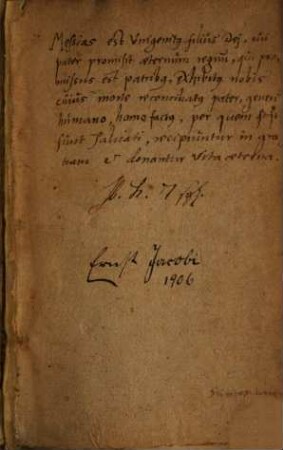 Messias est Unigenitus filius Dei, cui
pater promisit aeternum regnum, qui pro-
missus est patribus, exhibitus nobis
cuius morte reconciliatus pater, generi
humano, homo factus, per quem
sunt salvati, recipiuntur in gra-
tiam et donantur vita aeterna.
Ernst Jacobi
1906